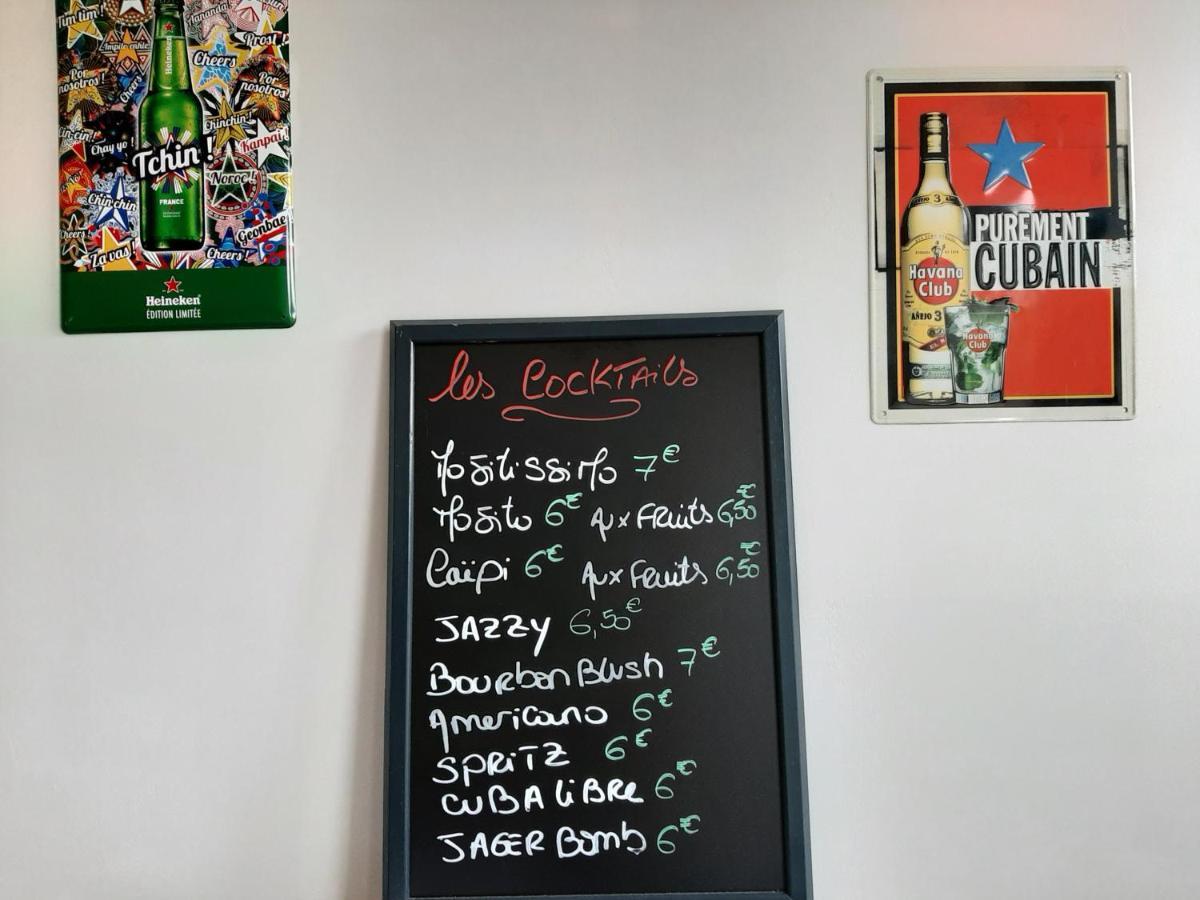 Tim tim !
Prost !
Cheers
Por nosotros !
Cheers
Por nosotros !
Chinchin !
Kanpai !
Chay yo !
Tchin !
Noroc !
FRANCE
Chin chin
Cheers !
Geonbae
Za vas !
Cheers !
Heineken
Heineken
ÉDITION LIMITÉE
AÑEJO 3
PUREMENT
CUBAIN
Havana
Club
AÑEJO 3
Havana
Club
les COCKTAILS
MoJitissiMo 7€
MoJito 6€ Aux FRuits 6,50€
Caïpi 6€ Aux FRuits 6,50€
JAZZY 6,50€
BouRbon Blush 7€
Americano 6€
SPRiTZ 6€
CUBA LiBRe 6€
JAGER Bomb 6€